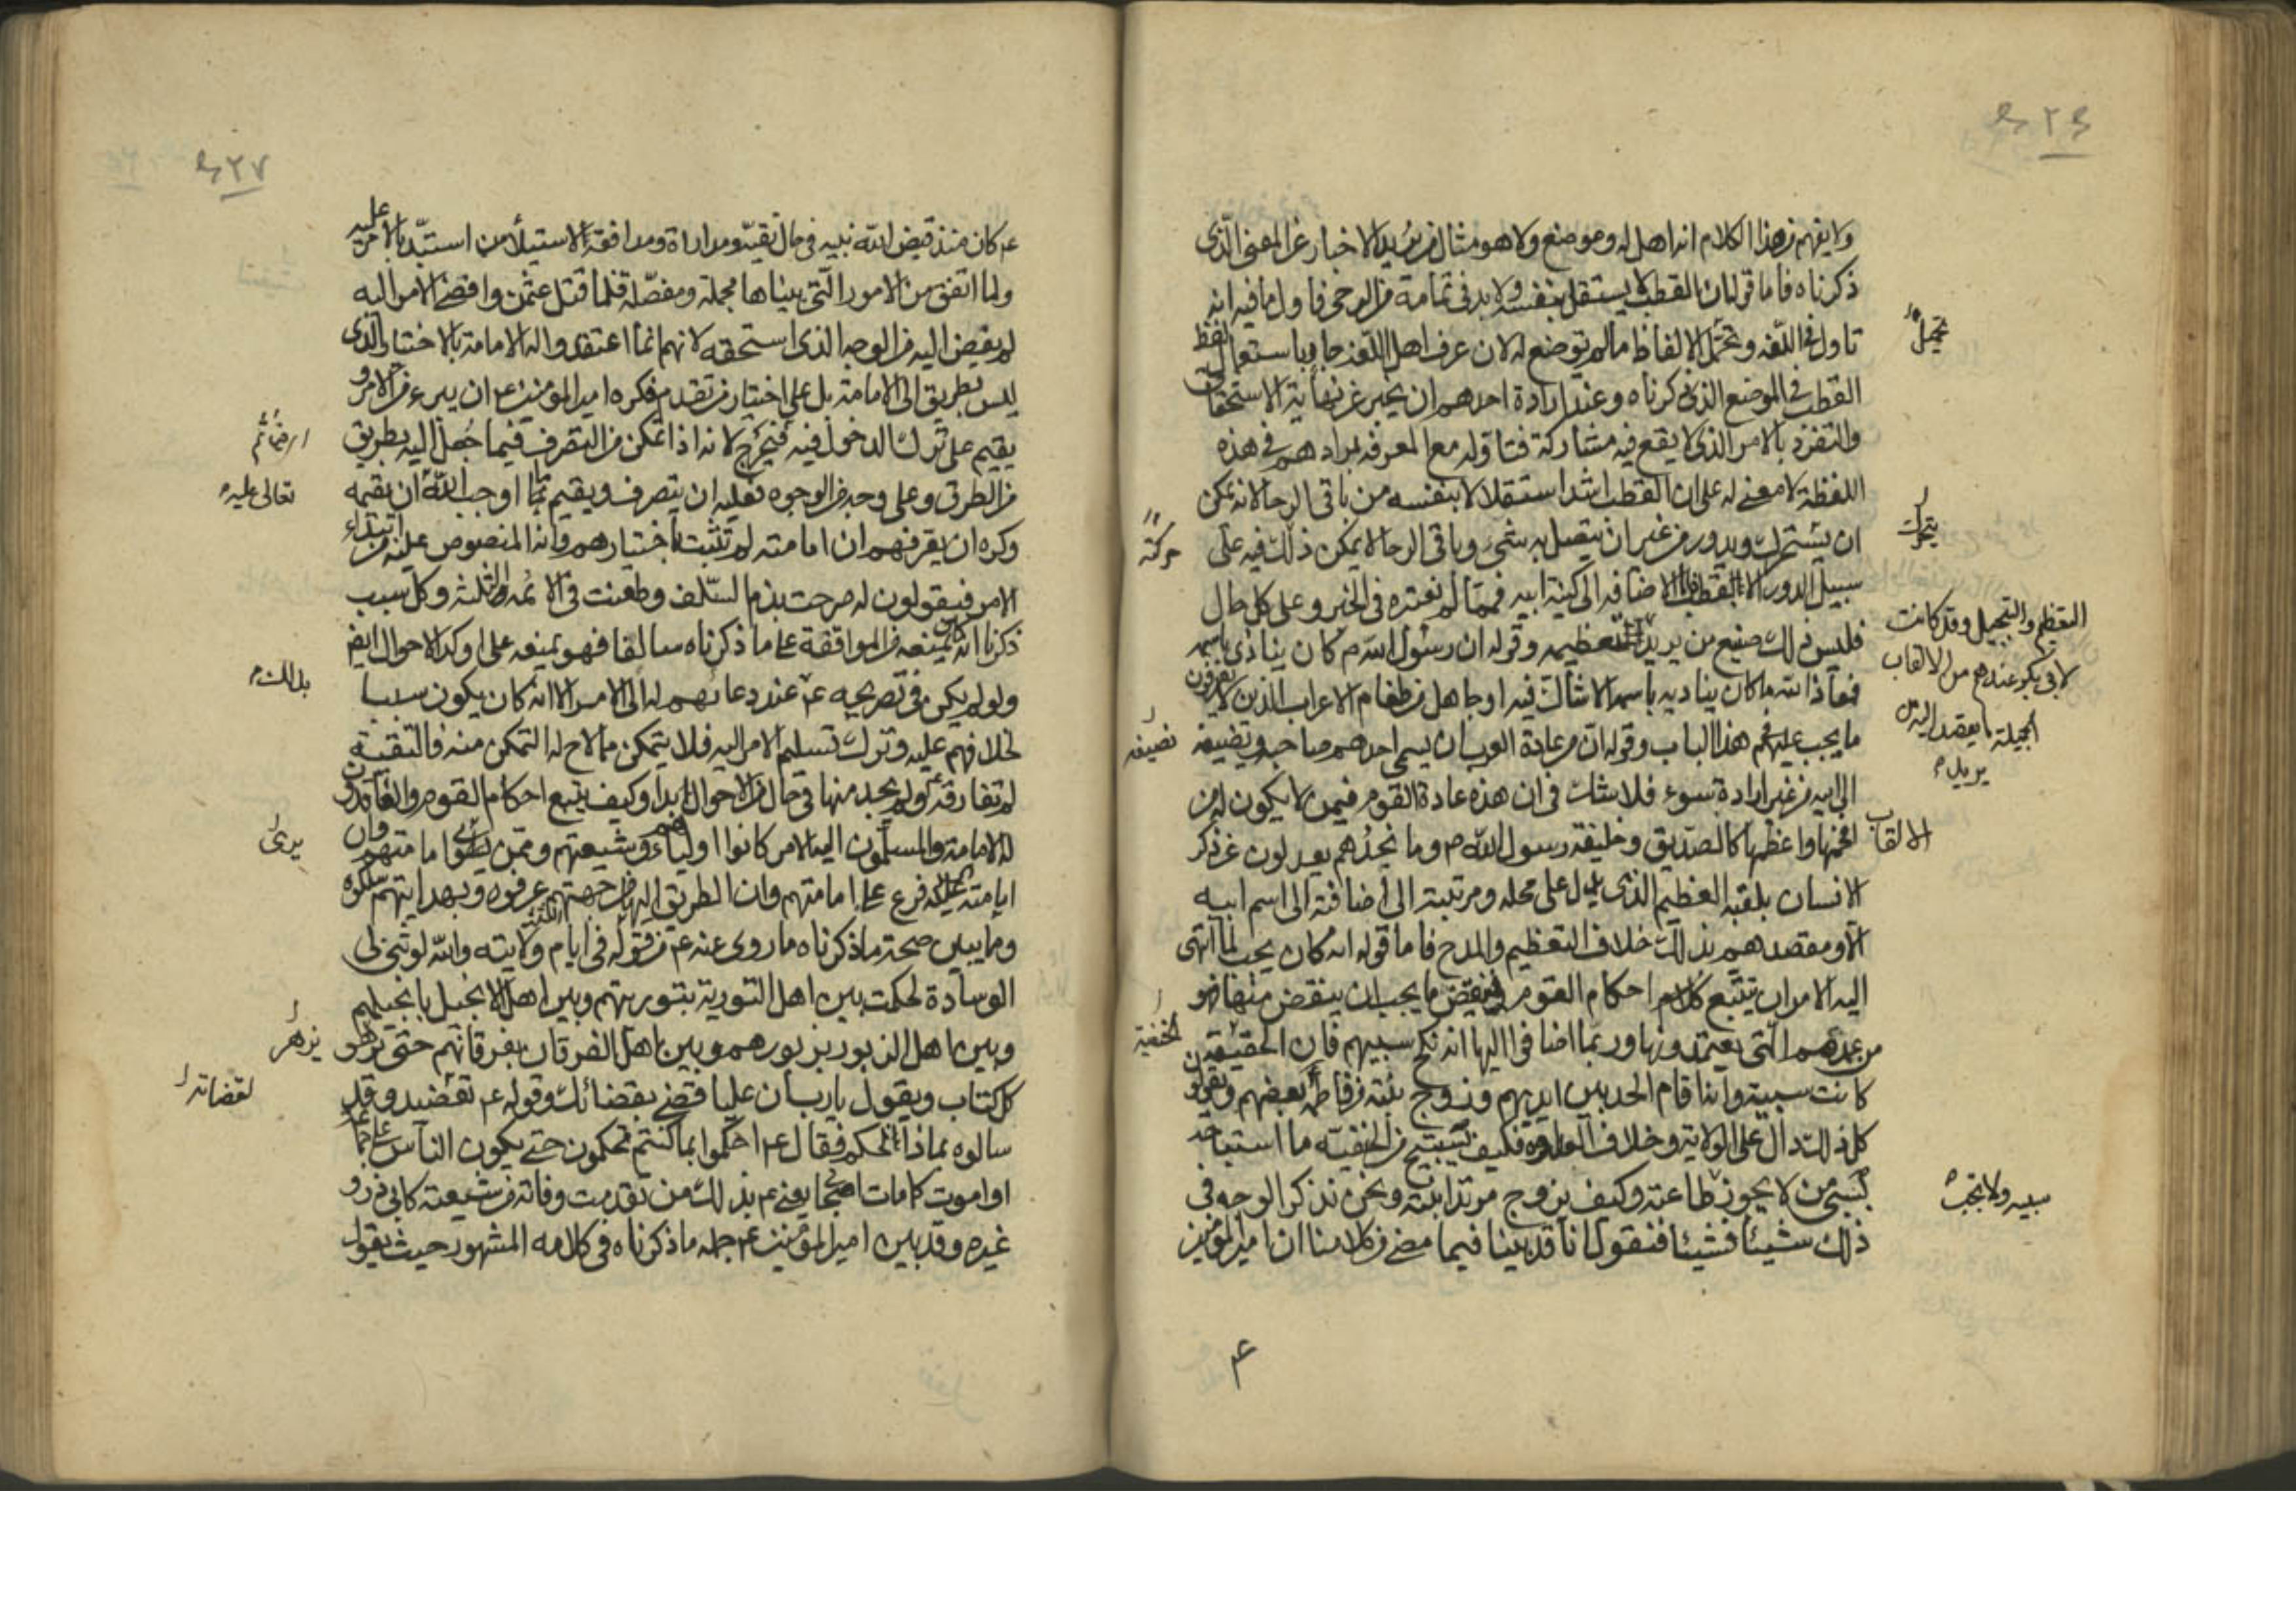 ولا يفهم من هذا الكلام انه اهل له وموضع ولا هو مثال من يريد الاخبار عن المعنى الذى
ذكرناه فاما قوله ان القطب لا يستقل بنفسه ولا بد فى تمامه من الرحى فاول ما فيه انه
تاول فى اللغه وتحمل الالفاظ ما لم توضع له لان عرف اهل اللغه جار باستعمال لفظ
القطب فى الموضع الذى ذكرناه وعند ارادة احدهم ان يخبر عن نهاية الاستحقاق
والتفرد بالامر الذى لا يقع فيه مشاركة فتاوله مع المعرفه بمرادهم فى هذه
اللفظة لا معنى له على ان القطب اشد استقلالا بنفسه من باقى الرحا لانه يمكن
ان ويدور من غير ان يتصل به شئ وباقى الرحا لا يمكن ذلك فيه على
سبيل الدور الا بالقطب فاما الاضافه الى كنية ابيه فمما لم نعتده فى الخبر وعلى كل حال
فليس ذلك صنيع من يريد التعظيم وقوله ان رسول الله ص كان ينادى باسمه
فمعاذ الله ما كان يناديه باسمه الا شاك فيه او جاهل من طغام الاعراب الذين لا يعرفون
ما يجب عليهم فى هذا الباب وقوله ان من عادة العرب ان يسمى احدهم صاحبه ويضيفه
الى ابيه من غير ارادة سوء فلا شك فى ان هذه عادة القوم فيمن لا يكون له من
الالقاب افخمها واعظمها كالصديق وخليفة رسول الله ص وما نجدهم يعدلون عن ذكر
الانسان بلقبه العظيم الذى يدل على محله ومرتبته الى اضافته الى اسم ابيه
الا ومقصدهم بذلك خلاف التعظيم والمدح فاما قوله انه كان يجب لما انتهى
اليه الامر ان يتتبع كل احكام القوم فينقض ما يجب ان ينقض منها فهو
من عمدهم التى يعتمدونها وربما اضافوا اليها انه نكح سبيهم فان الحنفية
كانت سبية وانه اقام الحد بين ايديهم وزوج بنته من فاطمة بعضهم ويقولون
كل ذلك دال على الولاية وخلاف العداوة فكيف يستبيح من الحنفيه ما استباحه
بسبى من لا يجوز طاعته وكيف يزوج مرتدا بنته ونحن نذكر الوجه فى
ذلك شيئا فشيئا فنقول انا قد بينا فيما مضى من كلامنا ان امير المؤمنين
تحميلُ
يتحرك
حركة
التعظيم والتبجيل وقد كانت
لابى بكر عندهم من الالقاب
الجميلة ما يقصد اليه
يريد
نضيفه
الحنفية
سبيه ولا نجب
٤
٢٧
ع كان منذ قبض الله نبيه فى حال تقية ومداراة ومدافعة لاستيلاء من استبد بالامر عليه
ولما اتفق من الامور التى بيناها مجملة ومفصلة فلما قتل عثمن وافضى الامر اليه
لم يفض اليه من الوجه الذى استحقه لانهم انما اعتقدوا له الامامة بالاختيار الذى
ليس بطريق الى الامامة بل على اختيار من تقدم فكره امير المؤمنين ع ان يبرء من الامر و
يقيم على ترك الدخول فيه فيحرج لانه اذا تمكن من التصرف فيما جُعل اليه بطريق
من الطرق وعلى وجه من الوجوه فعليه ان يتصرف ويقيم بما اوجب الله ان يقيمه
وكره ان يعرفهم ان امامته لم تثبت باختيارهم وانه المنصوص عليه من ابتداء
الامر فيقولون له صرحت بذم السلف وطعنت فى الائمه الثلثه وكل سبب
ذكرنا انه كان يمنعه من الموافقة على ما ذكرناه سالفا فهو يمنعه على اوكد الاحوال ايض
ولو لم يكن فى تصريحه ع عند دعائهم له الى الامر الا انه كان يكون سببا
لخلافهم عليه وترك تسليم الامر اليه فلا يتمكن مما لاح له التمكن منه فالتقية
لم تفارقه ع ولم يجد منها فى حال من الاحوال ابدا وكيف يتتبع احكام القوم والعاقدون
له الامامة والمسلمون اليه الامر كانوا اولياء القوم وشيعتهم وممن يرى امامتهم وان
امامته ع فرع على امامتهم وان الطريق اليها من جهتهم عرفوه وبهدايتهم سلكوه
ومما يبين صحة ما ذكرناه ما روى عنه ع من قوله فى ايام ولايته والله لو ثنى لى
الوسادة لحكمت بين اهل التورية بتوريتهم وبين اهل الانجيل بانجيلهم
وبين اهل الزبور بزبورهم وبين اهل الفرقان بفرقانهم حتى يزهر
كل كتاب ويقول يا رب ان عليا قضى بقضائك وقوله ع لقضاته وقد
سالوه بماذا نحكم فقال ع احكموا بما كنتم تحكمون حتى يكون الناس جماعة
او اموت كما مات اصحابى يعنى ع بذلك من تقدمت وفاته من شيعته كابى ذر و
غيره وقد بين امير المؤمنين ع جملة ما ذكرناه فى كلامه المشهور حيث يقول
تعالى عليه
بذلك
يرى
يزهر
لقضاته